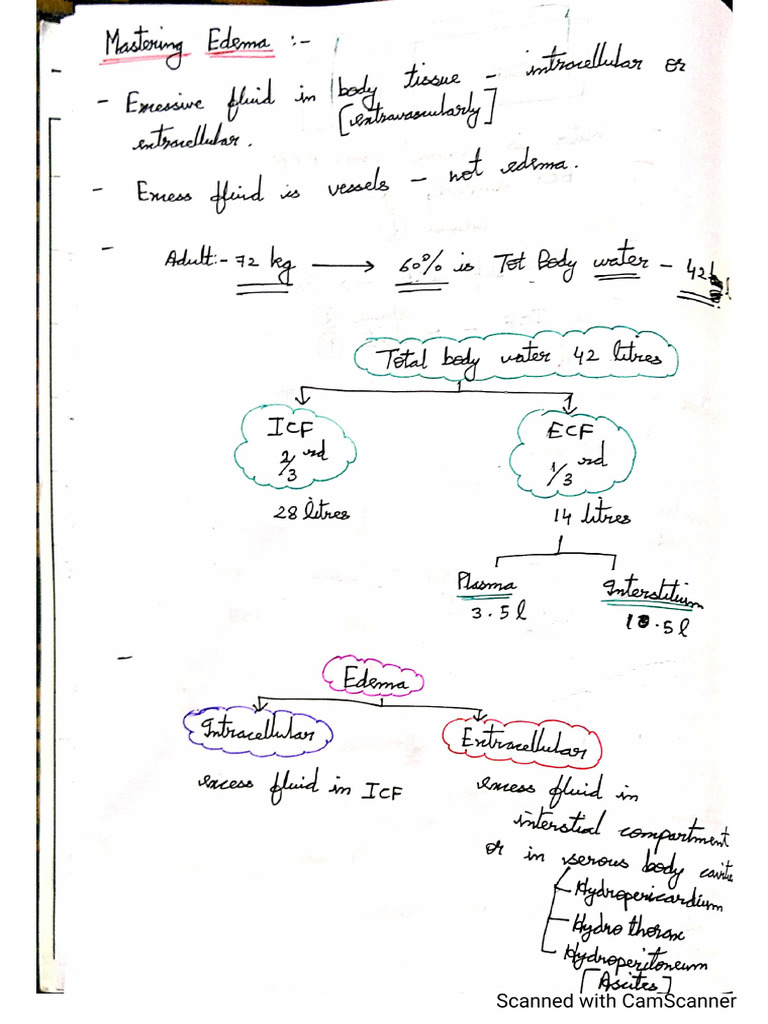 Mastering Edema :-
- Excessive fluid in body tissue - intracellular or
[extravascularly]
extracellular.
- Excess fluid is vessels - not edema.
- Adult:- 72 kg → 60% is Tot Body water - 42
Total body water 42 litres
ICF ECF
2/3 rd 1/3 rd
28 litres 14 litres
Plasma Interstitium
3.5 l 10.5 l
- Edema
Intracellular Extracellular
excess fluid in ICF excess fluid in
interstial compartment
or in serous body
Hydropericardium
Hydro thorax
Hydroperitoneum
[Ascites]
Scanned with CamScanner